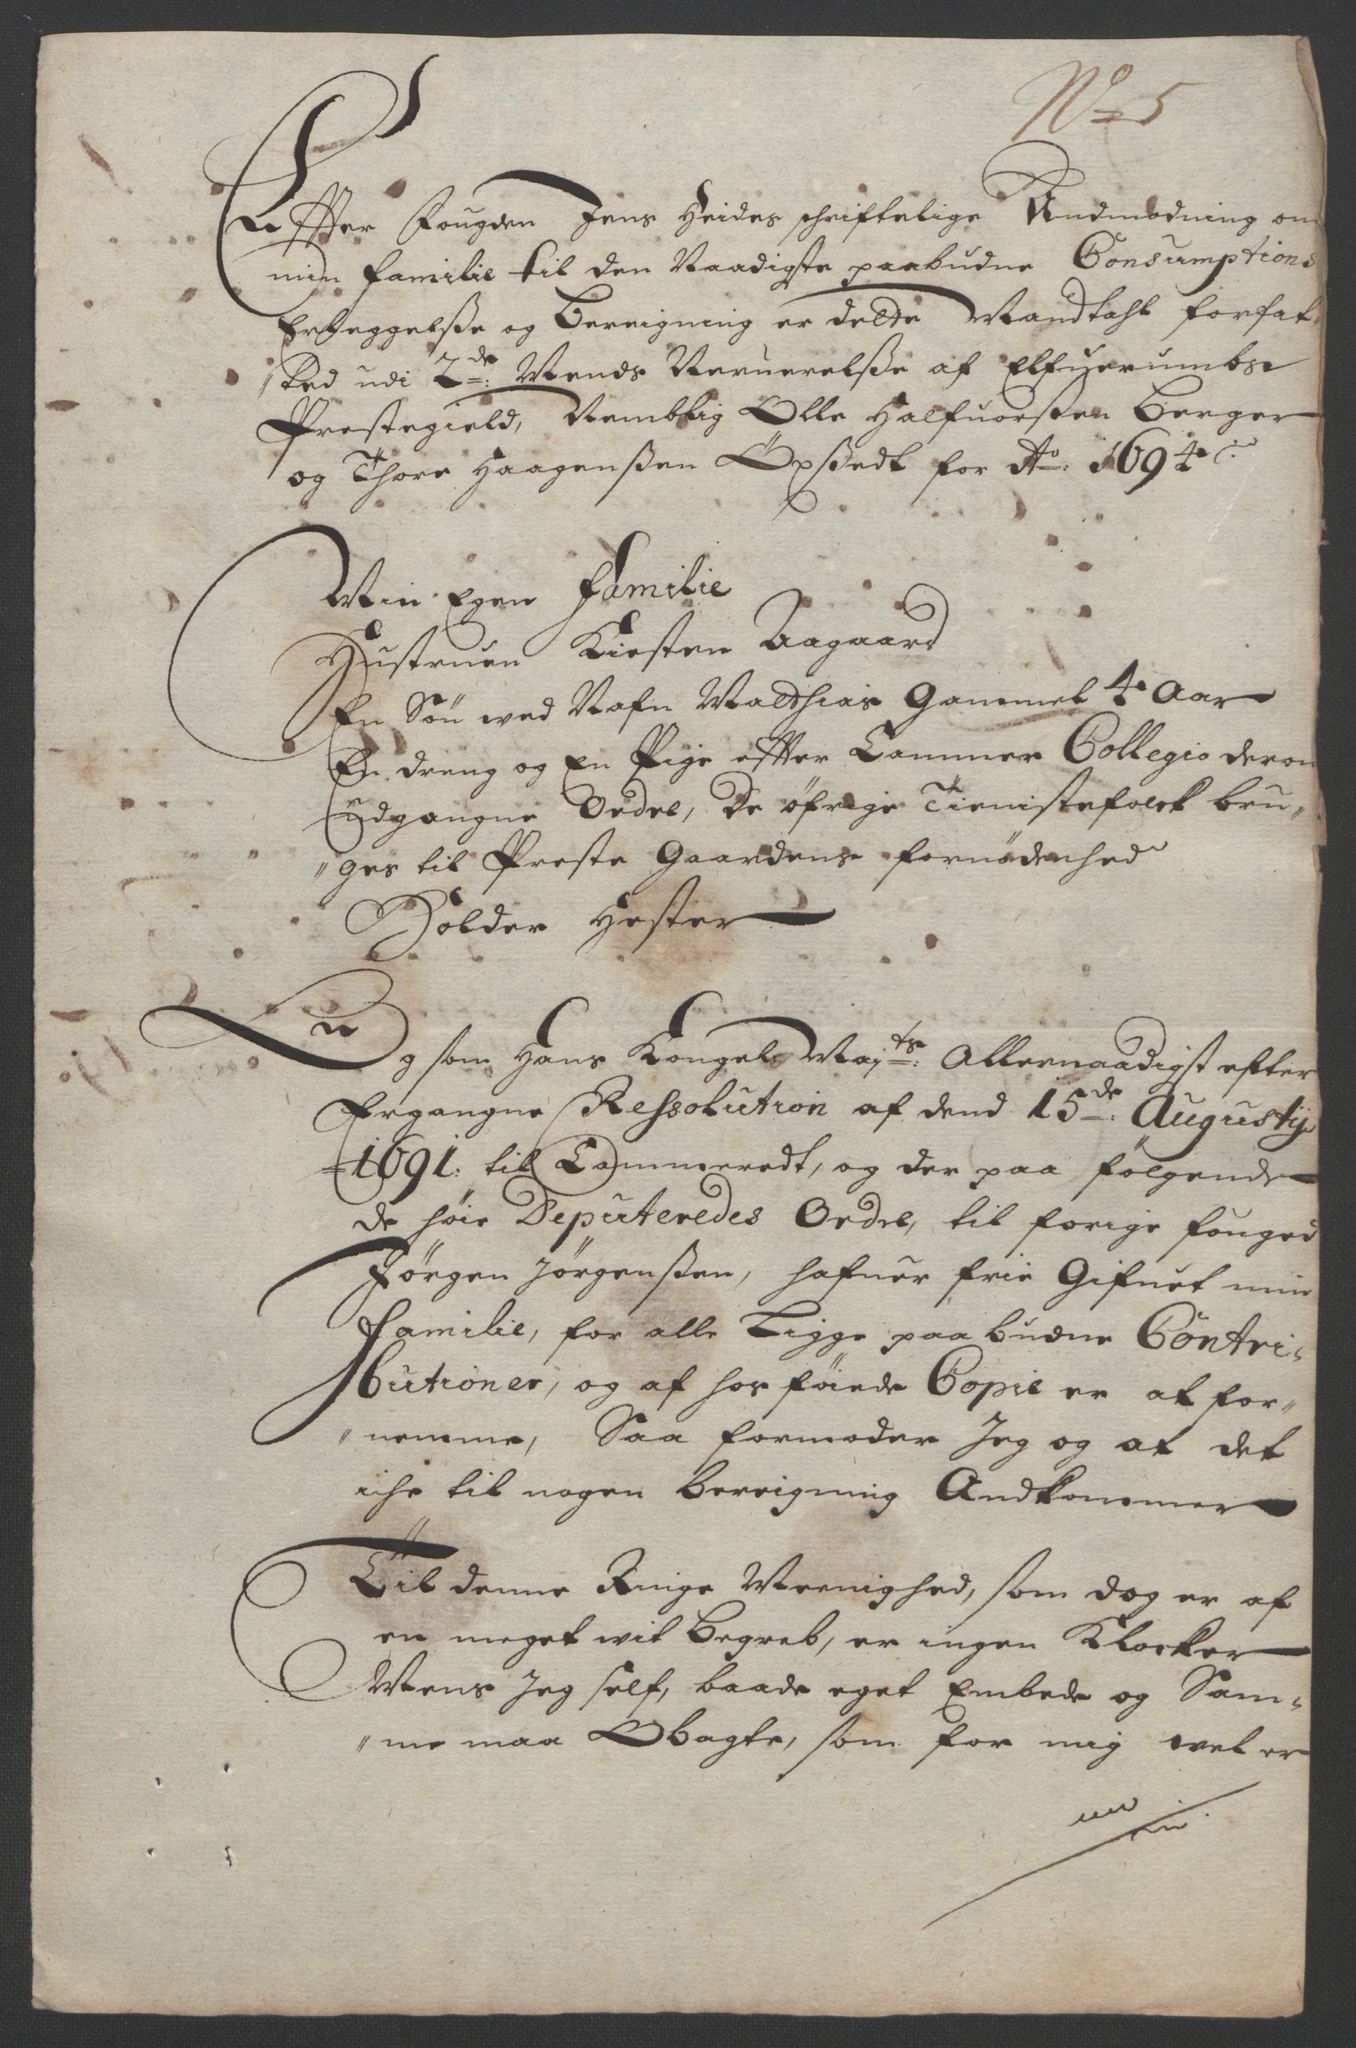 No 5
Effter Fougden Jens Heides schriftelige Andmodning om
min familie til den Naadigste paabudne Consumptions
Erleggelsse og Bereigning er dette Mandtahl forfat-
"ted udi 2de: Mends Neruerelsse af Elfuerumbs
Prestegield, Nemblig Olle Halfuorssen Berger
og Thore Haagenssen Opssedt for Ao: 1694
Min Egen Familie
Hustruen Kirsten Aagaard
En Søn wed Nafn Matthias Gammel 4 Aar
En dreng og En Pige effter Cammer Collegio derom
udgangne Ordre, De øfrige Tienistefolck bru-
"ges til Preste Gaardens fornødenhed
Holder Hester
Og som Hans Kongel: Majts: Allernaadigst efter
Ergangne Ressolution af dend 15de: Augustij
1691: til Cammeredt, og der paa følgende
de høie Deputeredes Ordre, til forige fouged
Jørgen Jørgenssen, hafuer frie Gifuet min
Familie, for alle Slige paabudne Contri-
butioner, og af hos føiede Copie er at for-
"nemme, Saa formoder Jeg og at det
iche til nogen bereigning Andkommer
Til denne Ringe Meenighed, som dog er af
en meget wit begreb, er ingen Klocker
Mens Jeg self, baade eget Embede og Sam-
"me maa Obagte, som for mig vel er